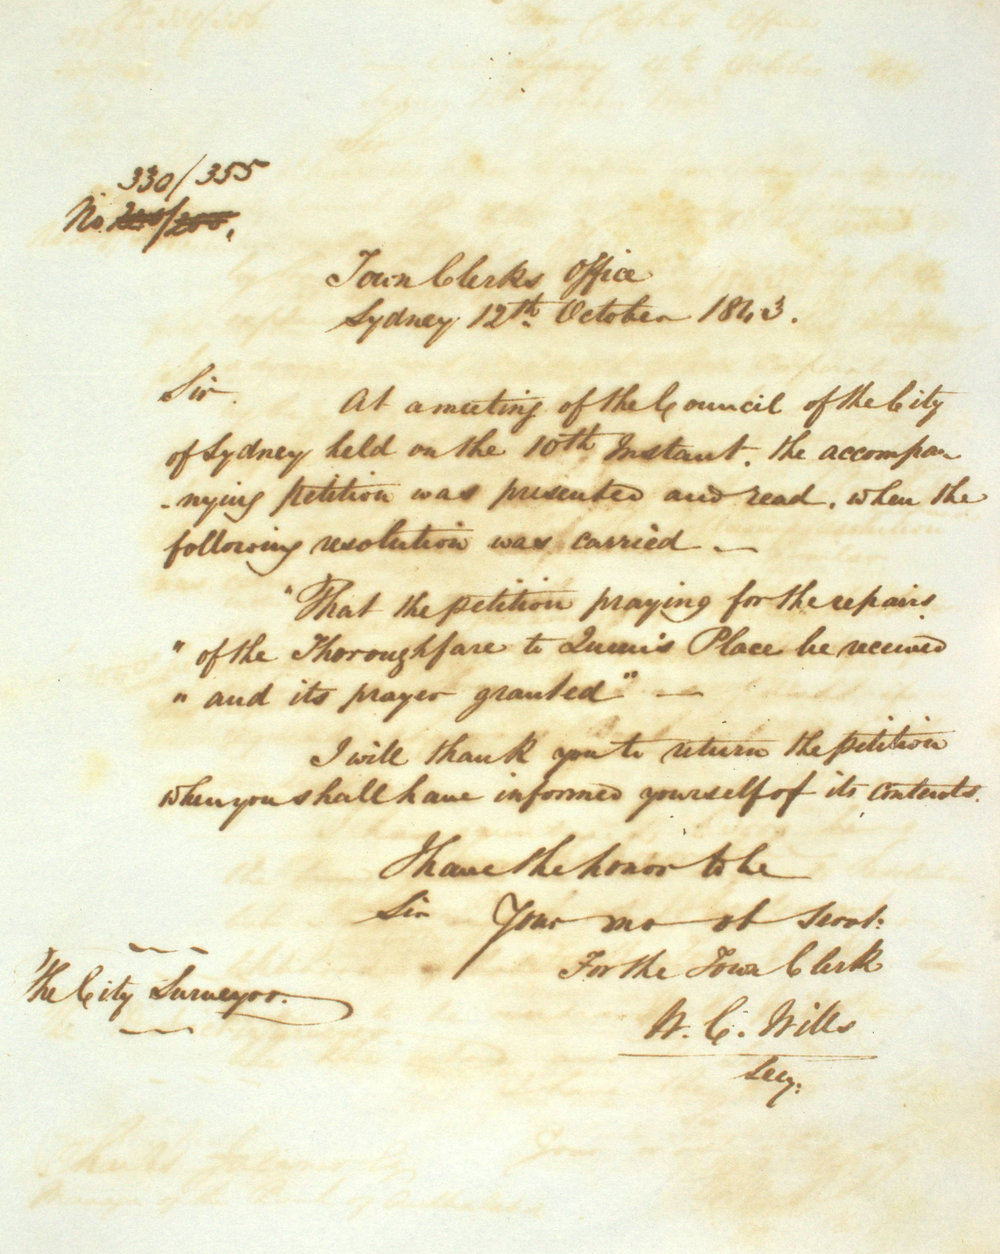 330/355
No.
Town Clerks Office
Sydney 12th October 1843.
Sir. At a meeting of the Council of the City
of Sydney held on the 10th Instant, the accompa
-nying petition was presented and read, when the
following resolution was carried —
"That the petition praying for the repairs
" of the Thoroughfare to Queen's Place be received
" and its prayer granted" —
I will thank you to return the petition
when you shall have informed yourself of its contents.
I have the honor to be
Sir Your mo ob Servt:
For the Town Clerk
The City Surveyor.
W. C. Wills
Secy: